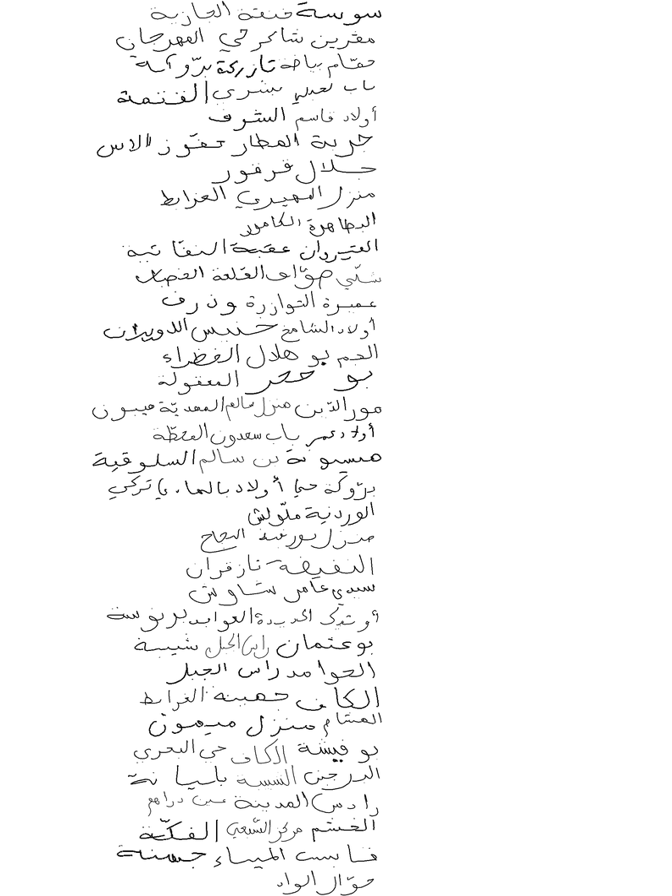 سوسة فنقة الجازية
مقرين شاكر حي المهرجان
حمّام بياضة تازركة بدّوٱسة
باب لعبلي بشري القنمة
أولاد قاسم الشرف
جربة العطار حفوز الاس
جلال قرقور
منزل المهيري الغرابط
البطاهرة الكامور
القيروان عقبة النقاتية
شلّي صوّاف القلعة الغضاب
عميرة التوازرة وذرف
أولاد الشامخ خنيس الدويرات
الجم بو هلال الخضراء
بو حجر المعقولة
مور الدّين منزل سالم المهديّة ميمون
أولاد عمر باب سعدون المحطّة
هيبونة بن سالم السلوقية
بدّوكة حي أولاد بالهاء تركي
الوردنية ملّولش
منزل بورقيبة النجاح
النفيضة تازغران
سيدي عامر شاوش
أوتيك الحديدة العوابد بربوسة
بوعثمان رأس الجبل شيبة
الحوامد راس الجبل
الكاف جهينة الغرابط
الهشام منزل ميمون
بو فيشة الكاف حي البحري
البرجين السبسة بليانة
رادس المدينة عين دراهم
الخشم مركز الشعبي الفكّة
قابس الميساء حسنة
حوّال الواد